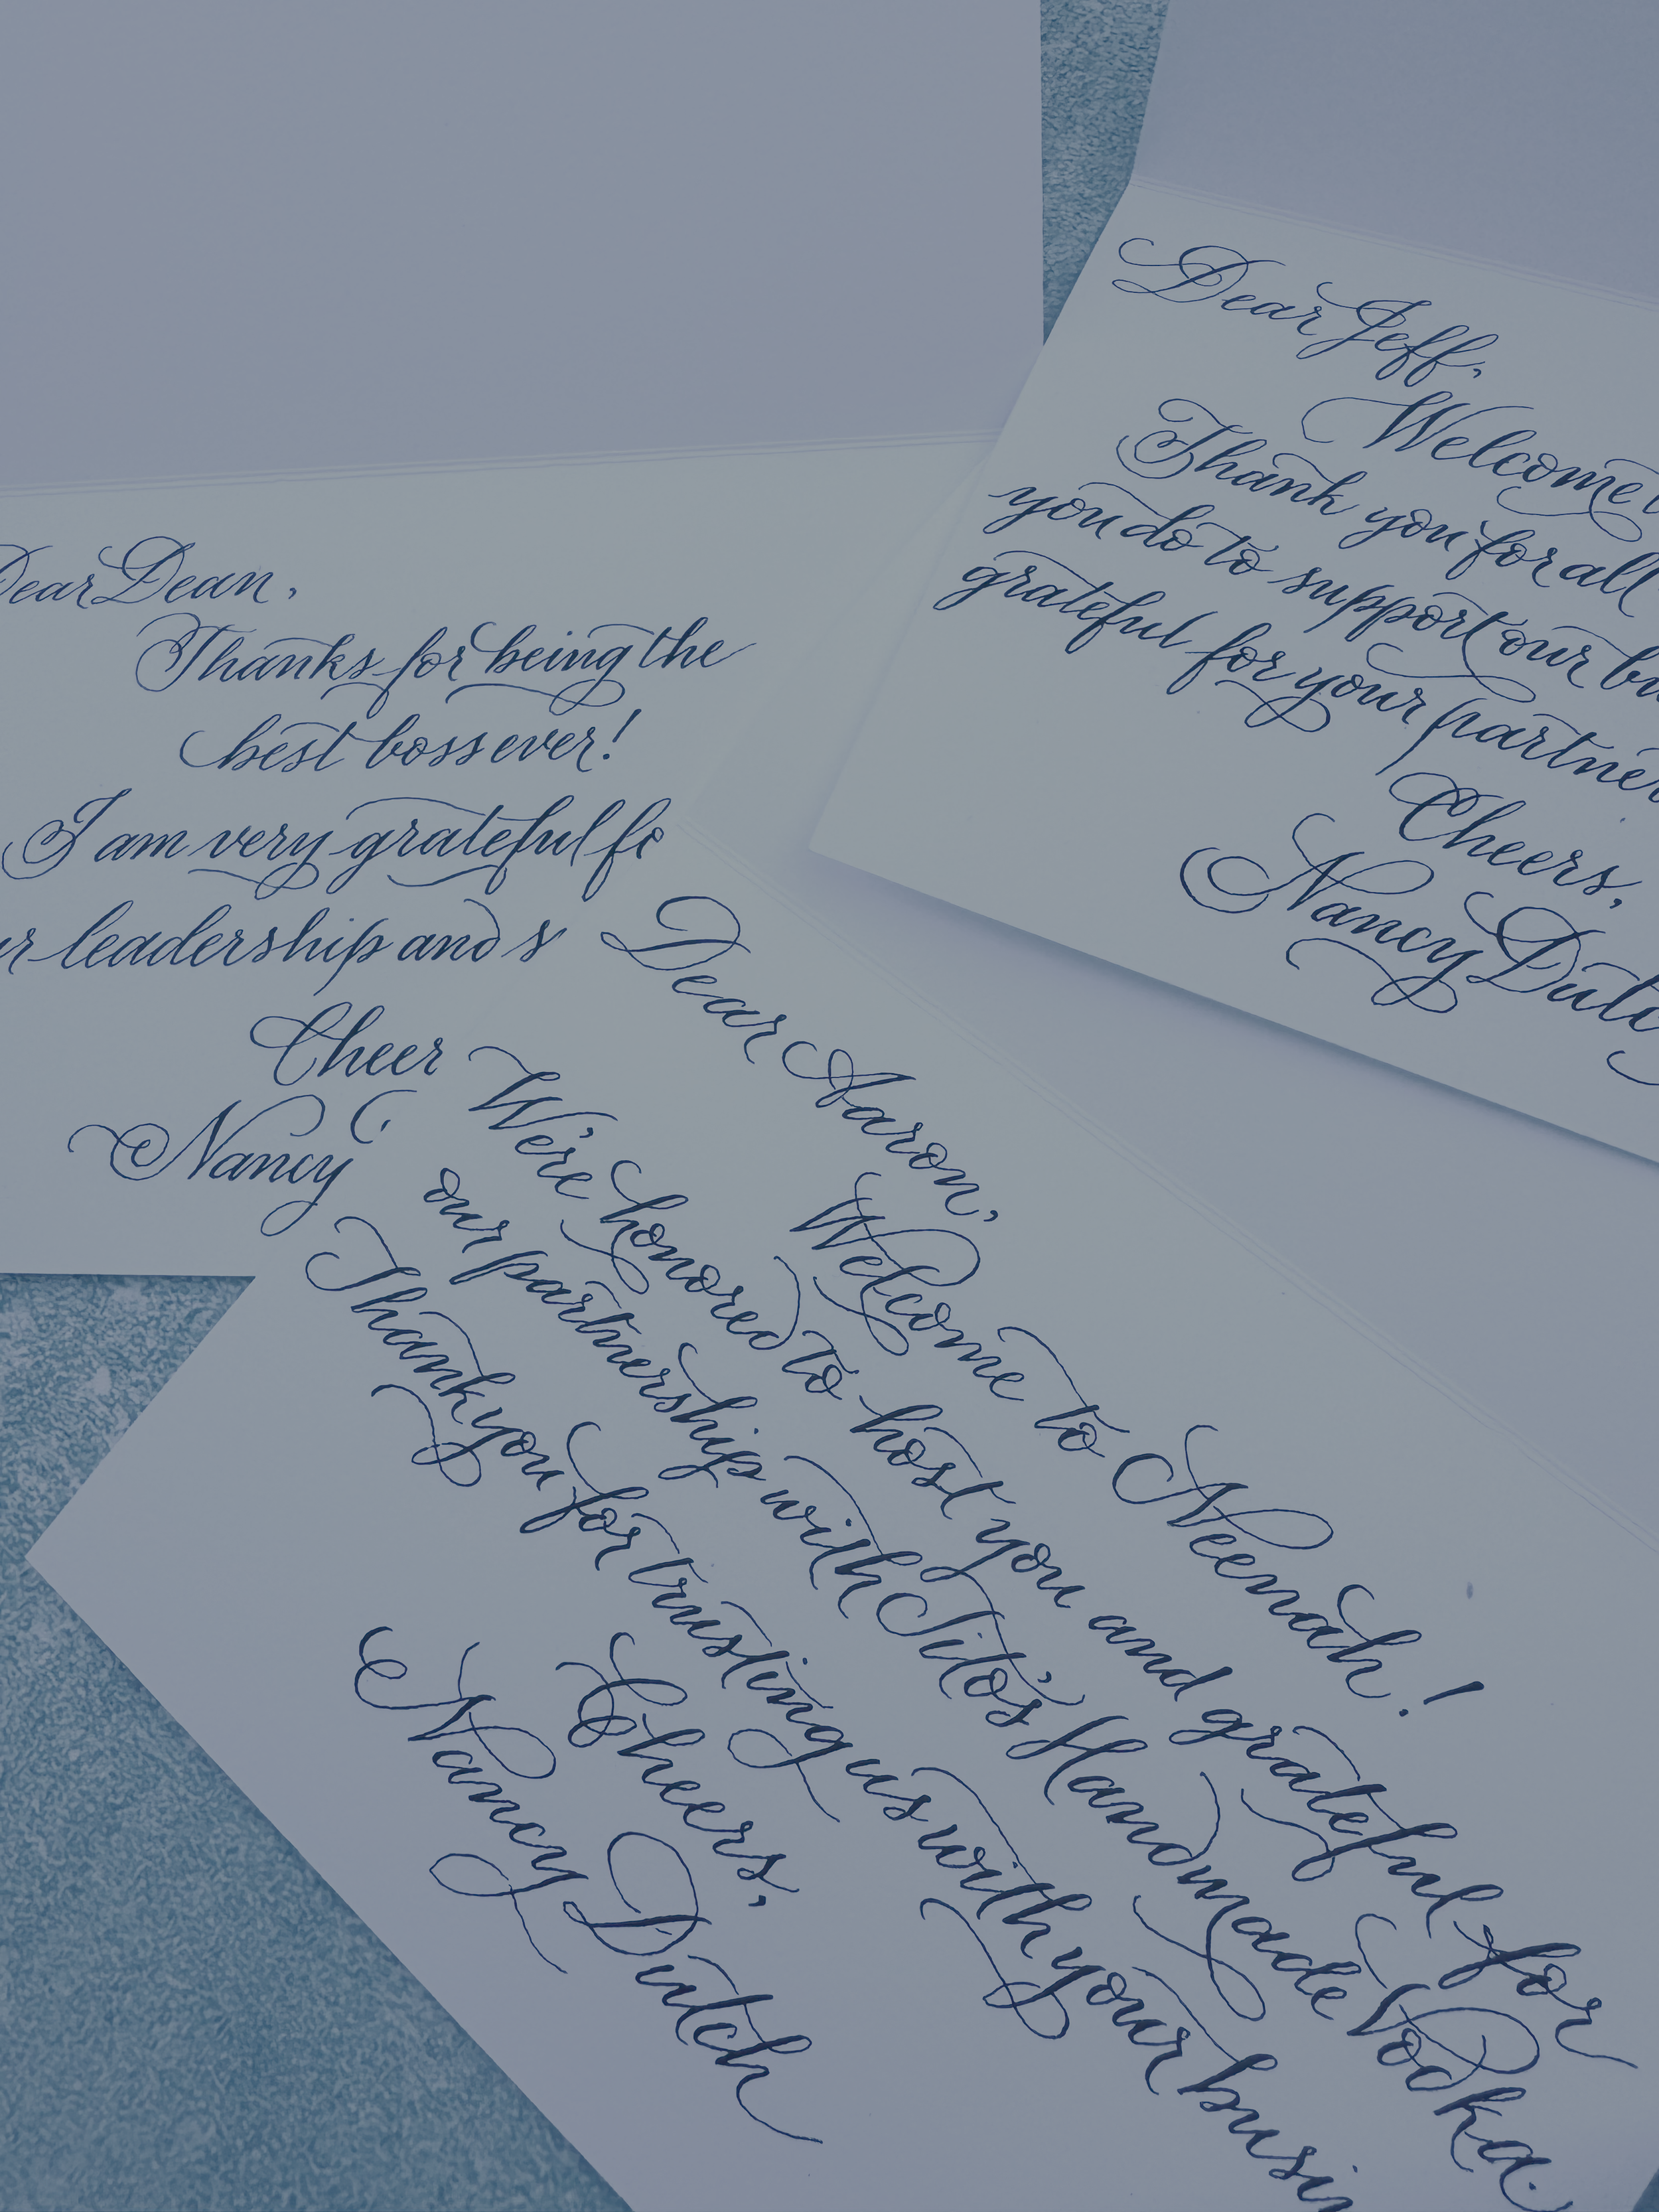 Dear Dean,
Thanks for being the
best boss ever!
I am very grateful fo
r leadership and s
Cheer
Nancy
Dear Jeff,
Welcome
Thank you for all
you do to support our bu
grateful for your partner
Cheers,
Nancy Dutc
Dear Aaron,
Welcome to Neenah!
We're honored to host you and grateful for
our partnership with Tito's Handmade Vodka.
Thank you for trusting us with your busi
Cheers,
Nancy Dutch